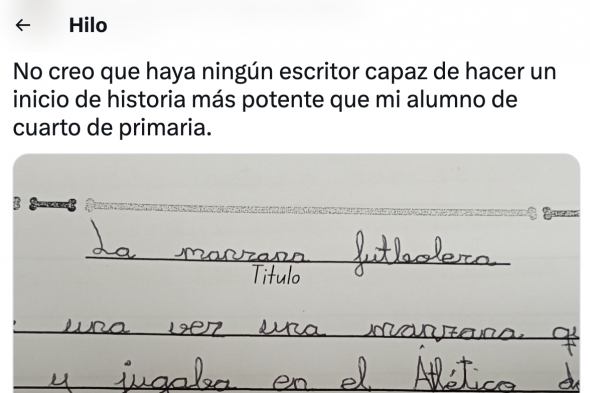 ← Hilo
No creo que haya ningún escritor capaz de hacer un
inicio de historia más potente que mi alumno de
cuarto de primaria.
La manzana futbolera
Titulo
una vez una manzana
y jugaba en el Átlético